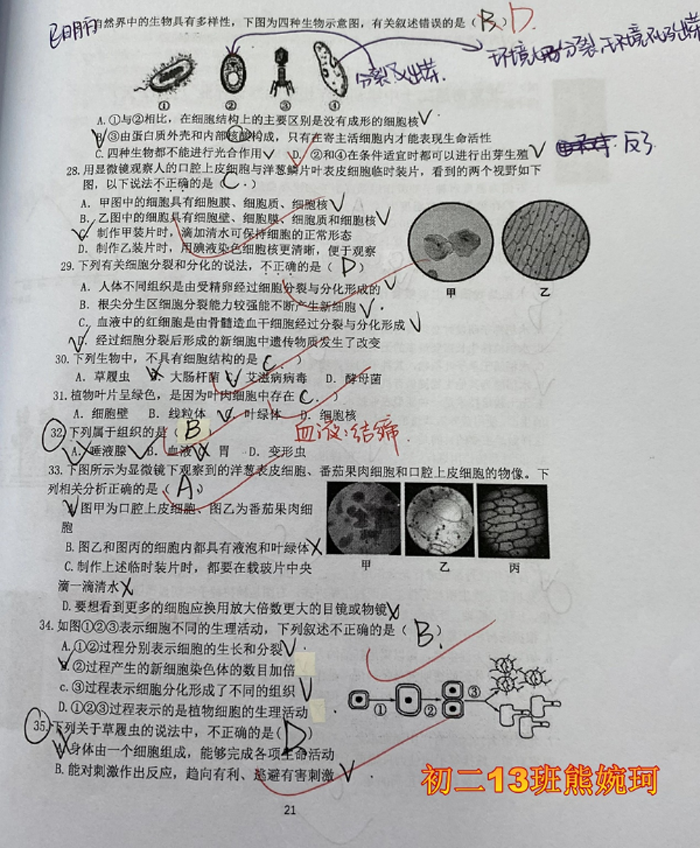 已明确
自然界中的生物具有多样性，下图为四种生物示意图，有关叙述错误的是（B、D.
分裂又出芽.
① ② ③ ④
A.①与②相比，在细胞结构上的主要区别是没有成形的细胞核√
B.③由蛋白质外壳和内部核酸构成，只有在寄主活细胞内才能表现生命活性
反了
C.四种生物都不能进行光合作用√ D. ②和④在条件适宜时都可以进行出芽生殖√
28.用显微镜观察人的口腔上皮细胞与洋葱鳞片叶表皮细胞临时装片，看到的两个视野如下
图，以下说法不正确的是（C.）
A. 甲图中的细胞具有细胞膜、细胞质、细胞核√
B. 乙图中的细胞具有细胞壁、细胞膜、细胞质和细胞核√
C. 制作甲装片时，滴加清水可保持细胞的正常形态
D. 制作乙装片时，用碘液染色细胞核更清晰，便于观察
甲 乙
29.下列有关细胞分裂和分化的说法，不正确的是（D）
A. 人体不同组织是由受精卵经过细胞分裂与分化形成的√
B. 根尖分生区细胞分裂能力较强能不断产生新细胞√.
C. 血液中的红细胞是由骨髓造血干细胞经过分裂与分化形成√
D. 经过细胞分裂后形成的新细胞中遗传物质发生了改变
30.下列生物中，不具有细胞结构的是（C.）
A. 草履虫 B. 大肠杆菌 C. 艾滋病病毒 D. 酵母菌
31.植物叶片呈绿色，是因为叶肉细胞中存在（C.）
A. 细胞壁 B. 线粒体 C. 叶绿体 D. 细胞核
32.下列属于组织的是（B）
血液:结缔.
A. 唾液腺 B. 血液 C. 胃 D. 变形虫
33.下图所示为显微镜下观察到的洋葱表皮细胞、番茄果肉细胞和口腔上皮细胞的物像。下
列相关分析正确的是（A.）
A.图甲为口腔上皮细胞、图乙为番茄果肉细
胞
B.图乙和图丙的细胞内都具有液泡和叶绿体X
C.制作上述临时装片时，都要在载玻片中央
滴一滴清水X
D.要想看到更多的细胞应换用放大倍数更大的目镜或物镜X
甲 乙 丙
34.如图①②③表示细胞不同的生理活动，下列叙述不正确的是（B.）
A.①②过程分别表示细胞的生长和分裂√
B.②过程产生的新细胞染色体的数目加倍
c.③过程表示细胞分化形成了不同的组织√
D.①②③过程表示的是植物细胞的生理活动
① ② ③
35.下列关于草履虫的说法中，不正确的是（D）
A.身体由一个细胞组成，能够完成各项生命活动
B.能对刺激作出反应，趋向有利、逃避有害刺激√
初二13班熊婉珂
21